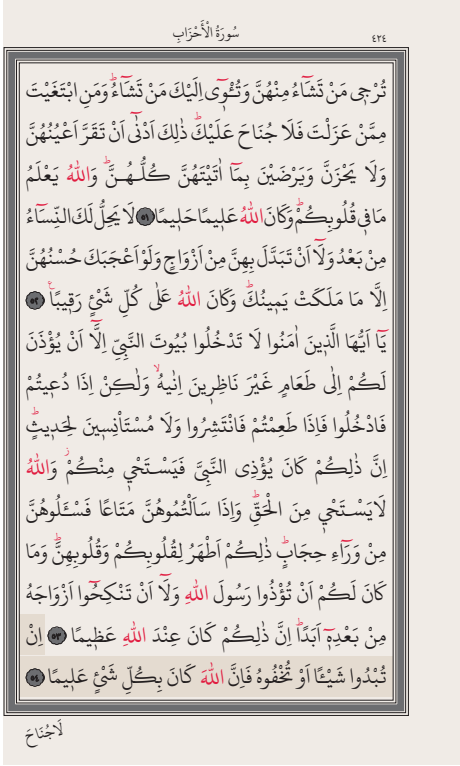 سُورَةُ الْأَحْزَابِ
٤٢٤
تُرْجِى مَنْ تَشَٓاءُ مِنْهُنَّ وَتُـْٔوِٓى اِلَيْكَ مَنْ تَشَٓاءُۜ وَمَنِ ابْتَغَيْتَ
مِمَّنْ عَزَلْتَ فَلَا جُنَاحَ عَلَيْكَۜ ذٰلِكَ اَدْنٰٓى اَنْ تَقَرَّ اَعْيُنُهُنَّ
وَلَا يَحْزَنَّ وَيَرْضَيْنَ بِمَٓا اٰتَيْتَهُنَّ كُلُّـهُـنَّۜ وَاللّٰهُ يَعْلَمُ
مَا فٖى قُلُوبِكُمْۜ وَكَانَ اللّٰهُ عَلٖيمًا حَلٖيمًا ﴿٥١﴾ لَا يَحِلُّ لَكَ النِّسَٓاءُ
مِنْ بَعْدُ وَلَٓا اَنْ تَبَدَّلَ بِهِنَّ مِنْ اَزْوَاجٍ وَلَوْ اَعْجَبَكَ حُسْنُهُنَّ
اِلَّا مَا مَلَكَتْ يَمٖينُكَۜ وَكَانَ اللّٰهُ عَلٰى كُلِّ شَىْءٍ رَقٖيبًا۟ ﴿٥٢﴾
يَٓا اَيُّهَا الَّذٖينَ اٰمَنُوا لَا تَدْخُلُوا بُيُوتَ النَّبِىِّ اِلَّٓا اَنْ يُؤْذَنَ
لَكُمْ اِلٰى طَعَامٍ غَيْرَ نَاظِرٖينَ اِنٰيهُۙ وَلٰكِنْ اِذَا دُعٖيتُمْ
فَادْخُلُوا فَاِذَا طَعِمْتُمْ فَانْتَشِرُوا وَلَا مُسْتَأْنِسٖينَ لِحَدٖيثٍۜ
اِنَّ ذٰلِكُمْ كَانَ يُؤْذِى النَّبِىَّ فَيَسْتَحْيٖ مِنْكُمْۘ وَاللّٰهُ
لَا يَسْتَحْيٖ مِنَ الْحَقِّۜ وَاِذَا سَاَلْتُمُوهُنَّ مَتَاعًا فَسْـَٔلُوهُنَّ
مِنْ وَرَٓاءِ حِجَابٍۜ ذٰلِكُمْ اَطْهَرُ لِقُلُوبِكُمْ وَقُلُوبِهِنَّۜ وَمَا
كَانَ لَكُمْ اَنْ تُؤْذُوا رَسُولَ اللّٰهِ وَلَٓا اَنْ تَنْكِحُٓوا اَزْوَاجَهُ
مِنْ بَعْدِهٖٓ اَبَدًاۜ اِنَّ ذٰلِكُمْ كَانَ عِنْدَ اللّٰهِ عَظٖيمًا ﴿٥٣﴾ اِنْ
تُبْدُوا شَيْـًٔا اَوْ تُخْفُوهُ فَاِنَّ اللّٰهَ كَانَ بِكُلِّ شَىْءٍ عَلٖيمًا ﴿٥٤﴾
لَاجُنَاحَ